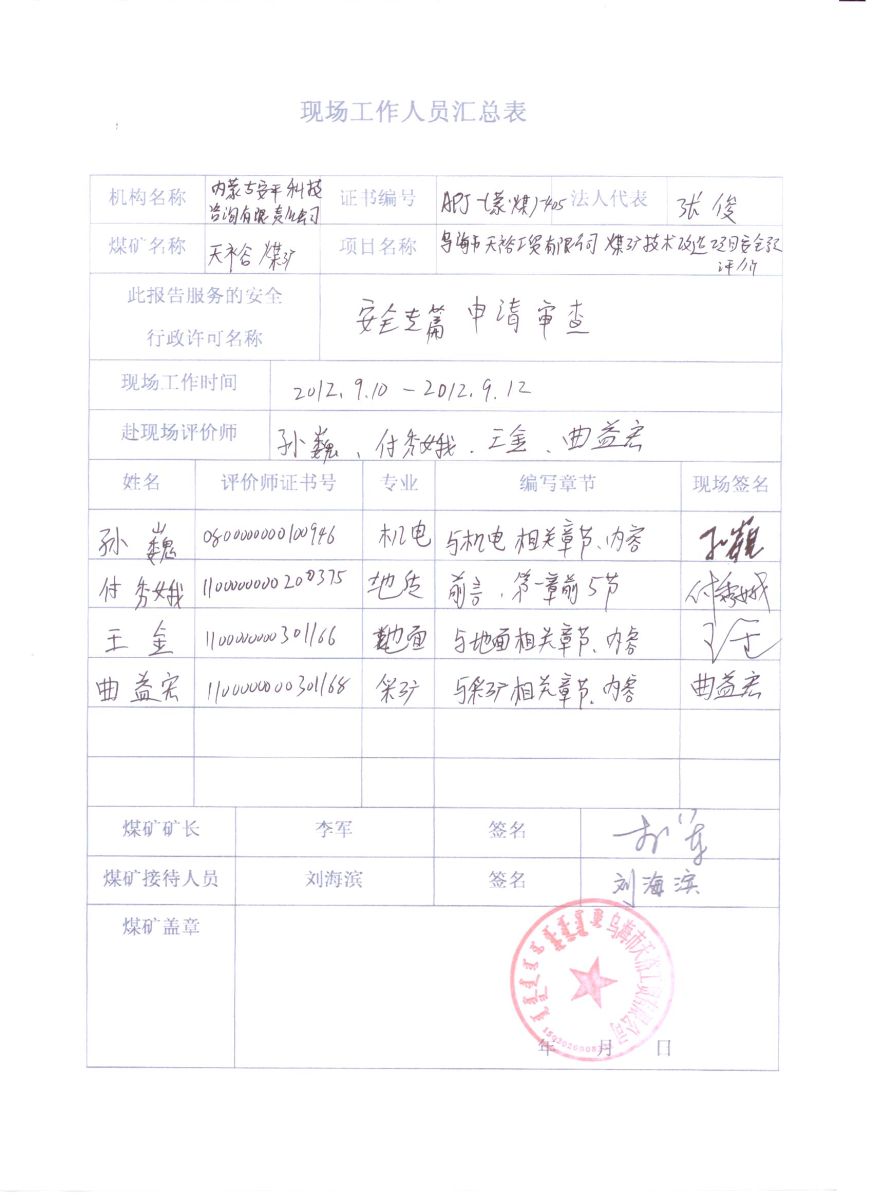 现场工作人员汇总表
机构名称 内蒙古安平科技咨询有限责任公司 证书编号 APJ-(蒙·煤)-405 法人代表 张俊
煤矿名称 天裕煤矿 项目名称 乌海市天裕工贸有限公司煤矿技术改造项目安全预评价
此报告服务的安全
行政许可名称 安全专篇申请审查
现场工作时间 2012.9.10 - 2012.9.12
赴现场评价师 孙巍、付秀娥、王金、曲益宏
姓名 评价师证书号 专业 编写章节 现场签名
孙巍 0800000000100946 机电 与机电相关章节、内容 孙巍
付秀娥 1100000000200375 地质 前言、第一章前5节 付秀娥
王金 1100000000301166 地面 与地面相关章节、内容 王金
曲益宏 1100000000301168 采矿 与采矿相关章节、内容 曲益宏
煤矿矿长 李军 签名 李军
煤矿接待人员 刘海滨 签名 刘海滨
煤矿盖章
乌海市天裕工贸有限公司
年 月 日